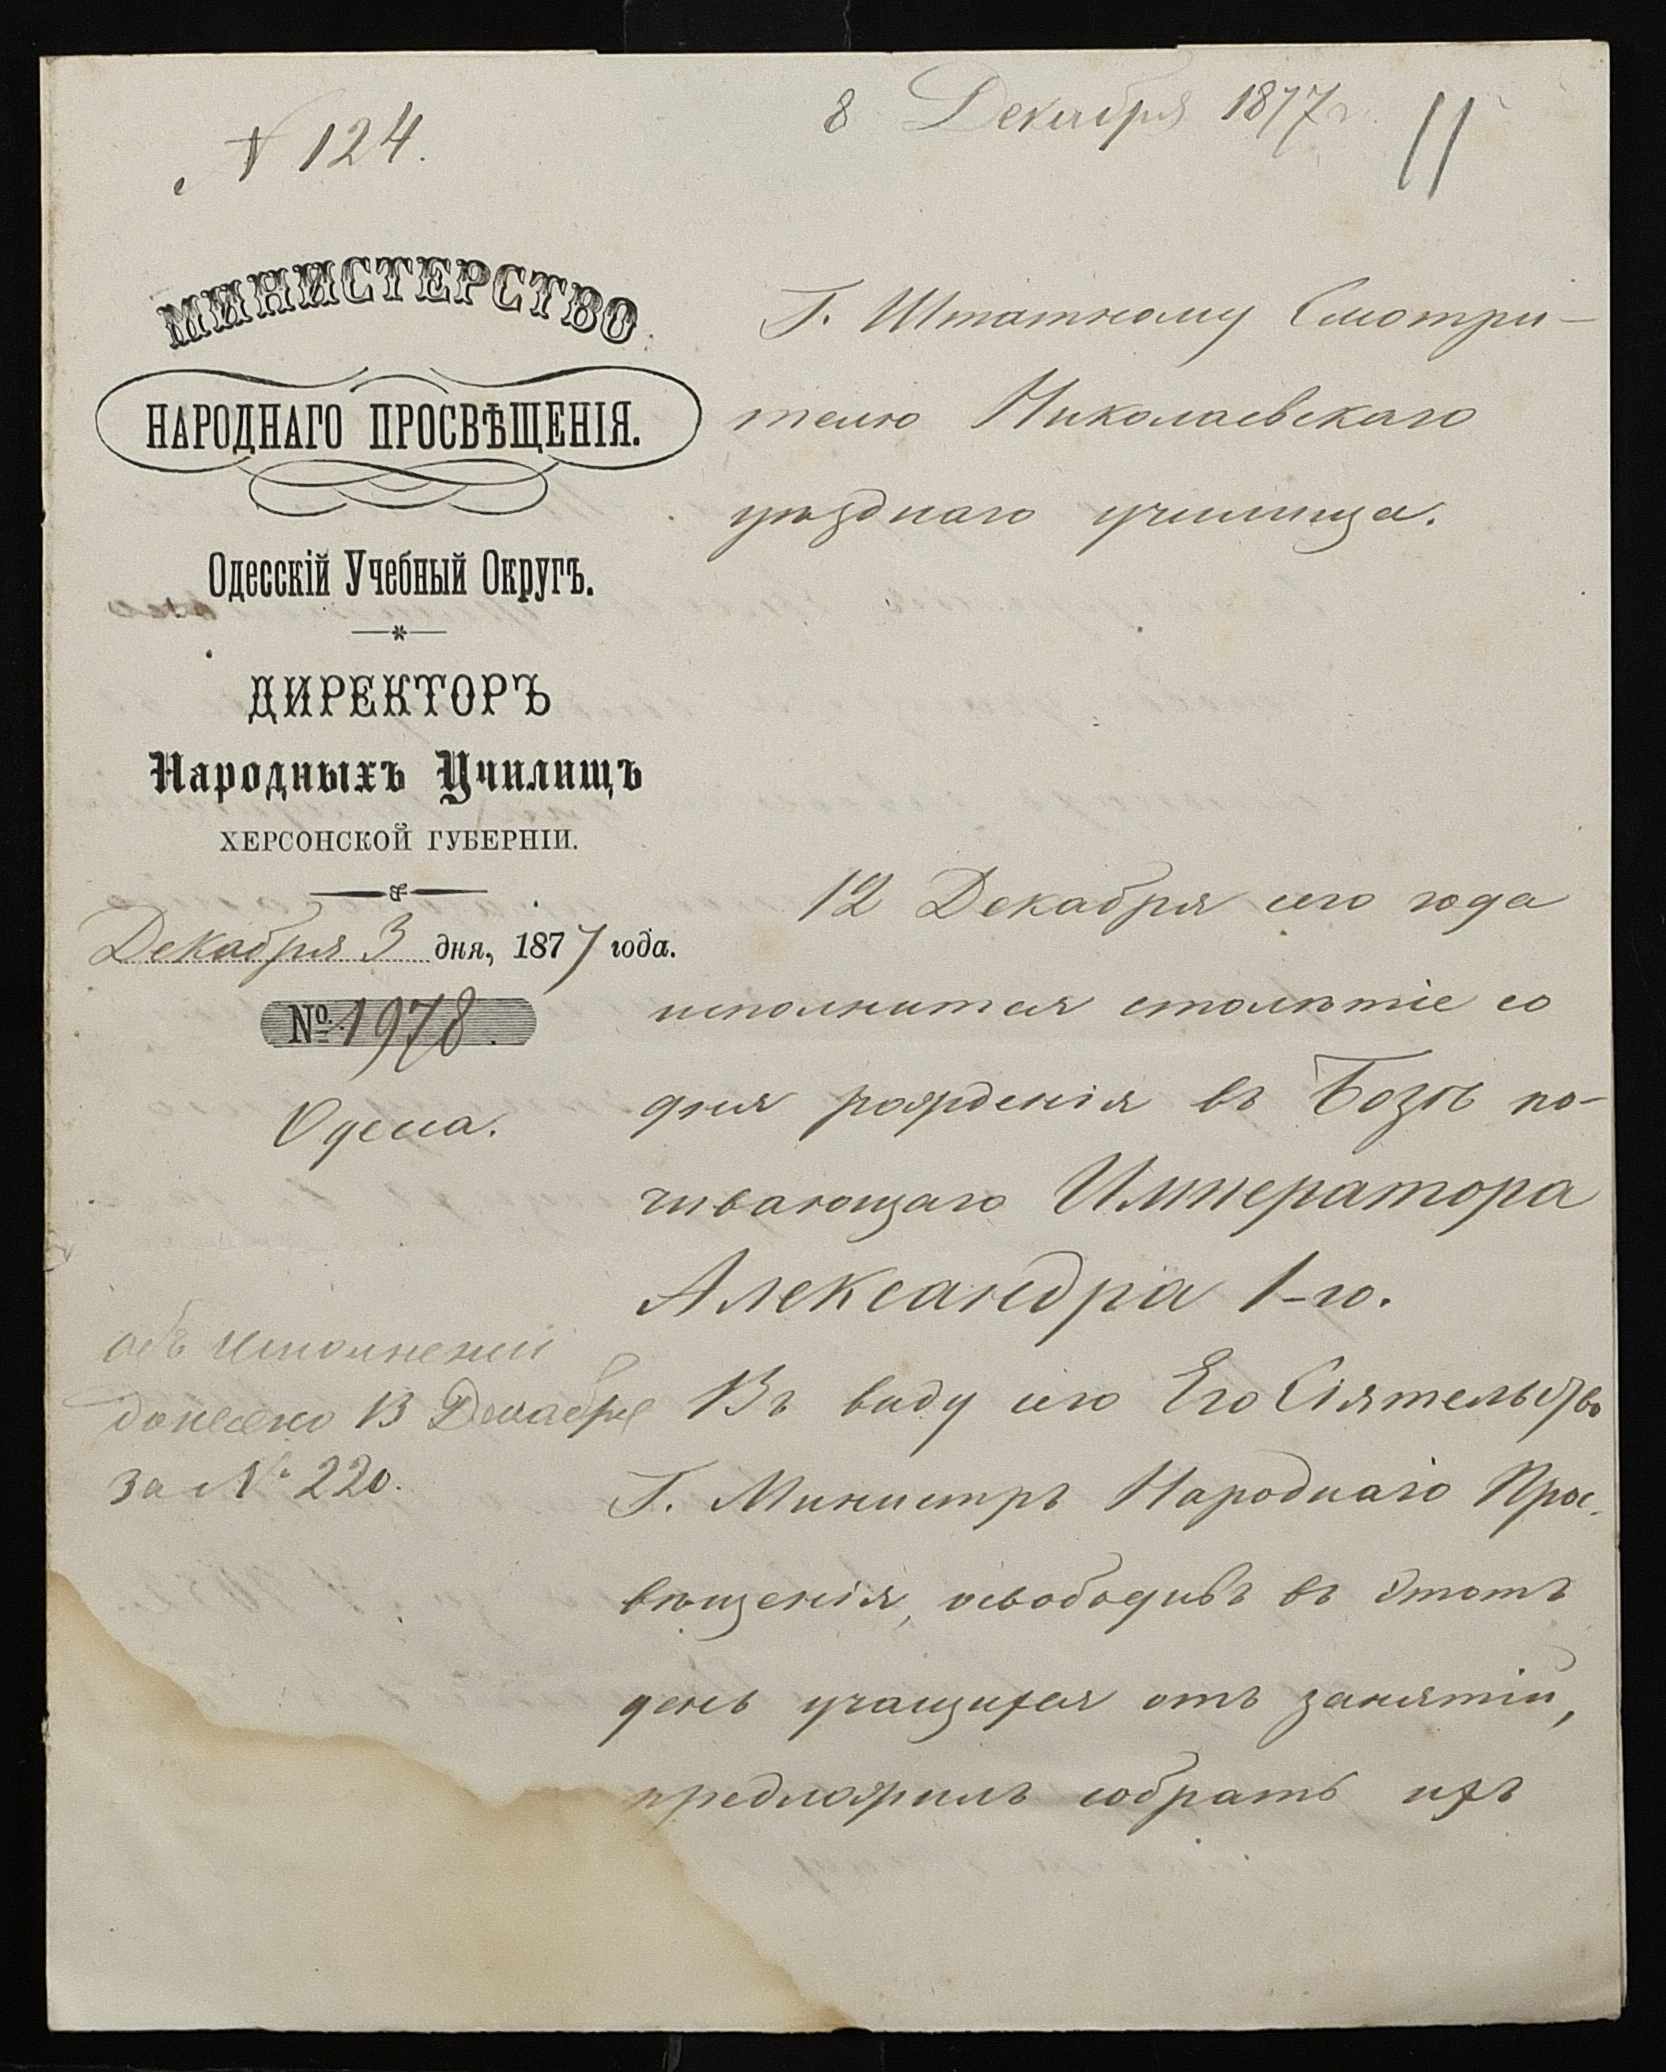 № 124.
8 Декабря 1877 г.
11
МИНИСТЕРСТВО
НАРОДНАГО ПРОСВѢЩЕНІЯ.
Одесскій Учебный Округъ.
ДИРЕКТОРЪ
Народныхъ Училищъ
ХЕРСОНСКОЙ ГУБЕРНІИ.
Декабря 3 дня, 1877 года.
№ 1978.
Одесса.
Объ исполненіи
донесено 13 Декабря
за № 220.
Г. Штатному Смотри-
телю Николаевскаго
уѣзднаго училища.
12 Декабря сего года
исполнится столѣтіе со
дня рожденія въ Бозѣ по-
чивающаго Императора
Александра 1-го.
Въ виду сего Его Сіятельство
Г. Министръ Народнаго Прос-
вѣщенія, освободивъ въ этотъ
день учащихся отъ занятій,
предложилъ собрать ихъ